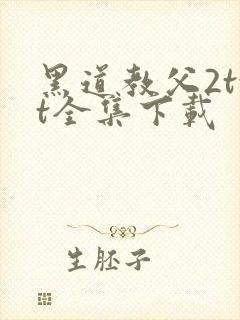 黑道教父2t
t全集下载
生胚子